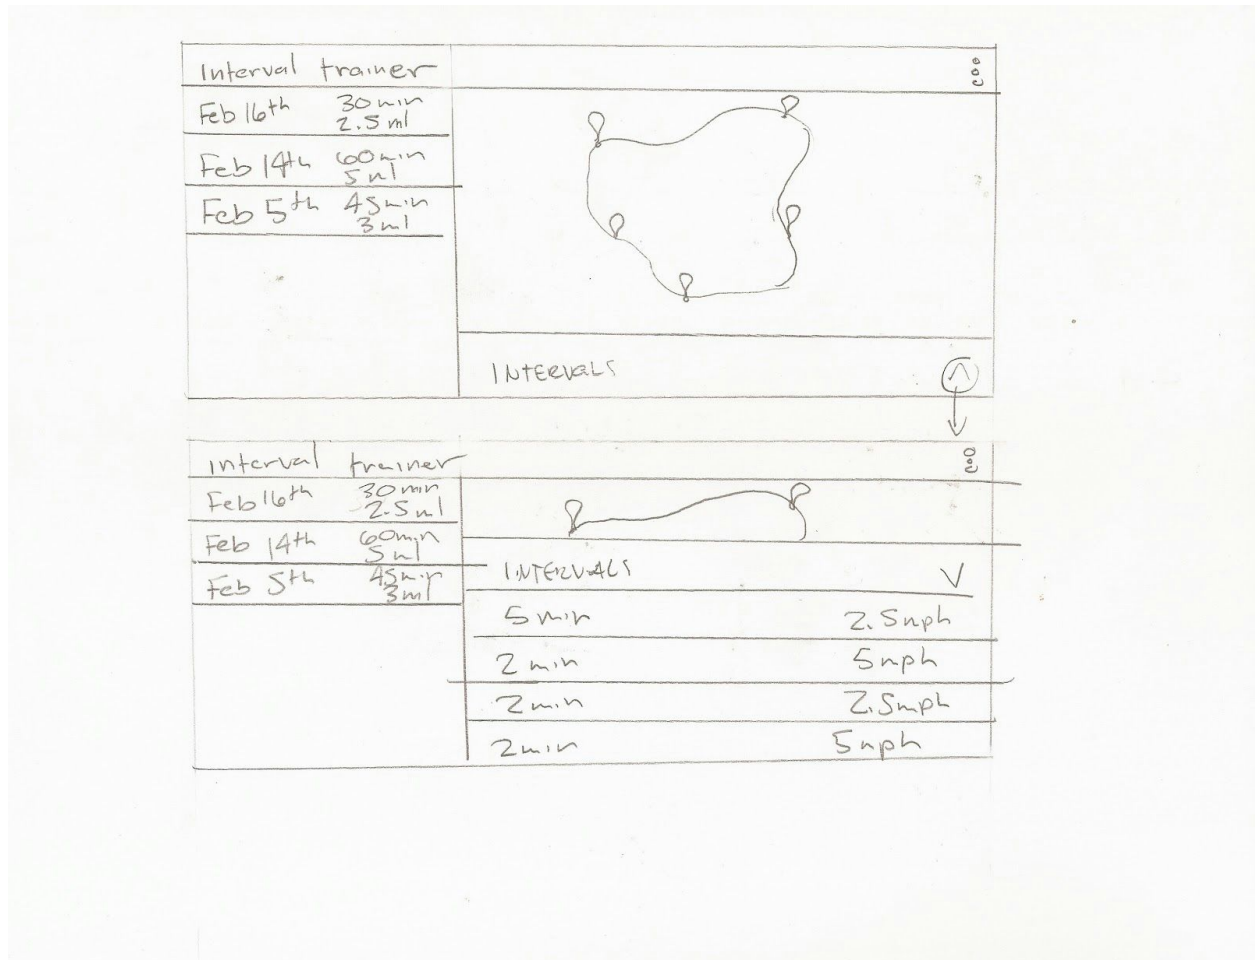 Interval trainer
Feb 16th 30 min
2.5 ml
Feb 14th 60 min
5 ml
Feb 5th 45 min
3 ml
INTERVALS
interval trainer
Feb 16th 30 min
2.5 ml
Feb 14th 60 min
5 ml
Feb 5th 45 min
3 ml
INTERVALS
5 min 2.5 mph
2 min 5 mph
2 min 2.5 mph
2 min 5 mph